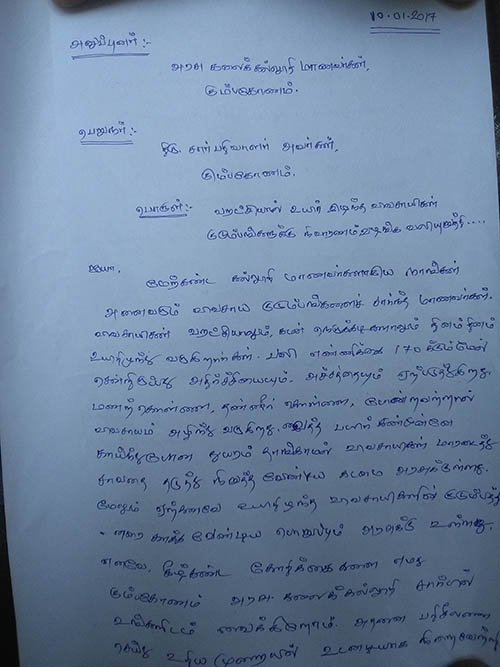 10-01-2017
அனுப்புனர் :-
அரசு கலைக்கல்லூரி மாணவர்கள்,
கும்பகோணம்.
பெறுநர் :-
திரு. சார் பதிவாளர் அவர்கள்,
கும்பகோணம்.
பொருள் :- வறட்சியால் உயிர் இழந்த விவசாயிகள்
குடும்பங்களுக்கு நிவாரணம் வழங்க வலியுறுத்தி....
ஐயா,
மேற்கண்ட கல்லூரி மாணவர்களாகிய நாங்கள்
அனைவரும் விவசாய குடும்பங்களைச் சார்ந்த மாணவர்கள்.
விவசாயிகள் வறட்சியாலும், கடன் நெருக்கடிகளாலும் தினம் தினம்
உயிரிழந்து வருகிறார்கள். பலி எண்ணிக்கை 170 க்கும் மேல்
சென்றிருப்பது அதிர்ச்சியையும், அச்சத்தையும் ஏற்படுத்துகிறது.
மணற்கொள்ளை, தண்ணீர் கொள்ளை, போன்றவற்றால்
விவசாயம் அழிந்து வருகிறது. வைத்த பயிர் கண்முன்னே
துயரம் தாங்காமல் விவசாயிகள் மாரடைத்து
சாவதை தடுத்து நிறுத்த வேண்டிய கடமை அரசுக்குள்ளது.
மேலும் ஏற்கனவே உயிரிழந்த விவசாயிகளின் குடும்பத்
தினரை காக்க வேண்டிய பொறுப்பும் அரசுக்கு உள்ளது.
எனவே, கீழ்கண்ட கோரிக்கைகளை எமது
கும்பகோணம் அரசு கலைக்கல்லூரி சார்பில்
உங்களிடம் வைக்கிறோம். அதனை பரிசீலனை
செய்து உரிய முறையில் உடனடியாக நிறைவேற்றி